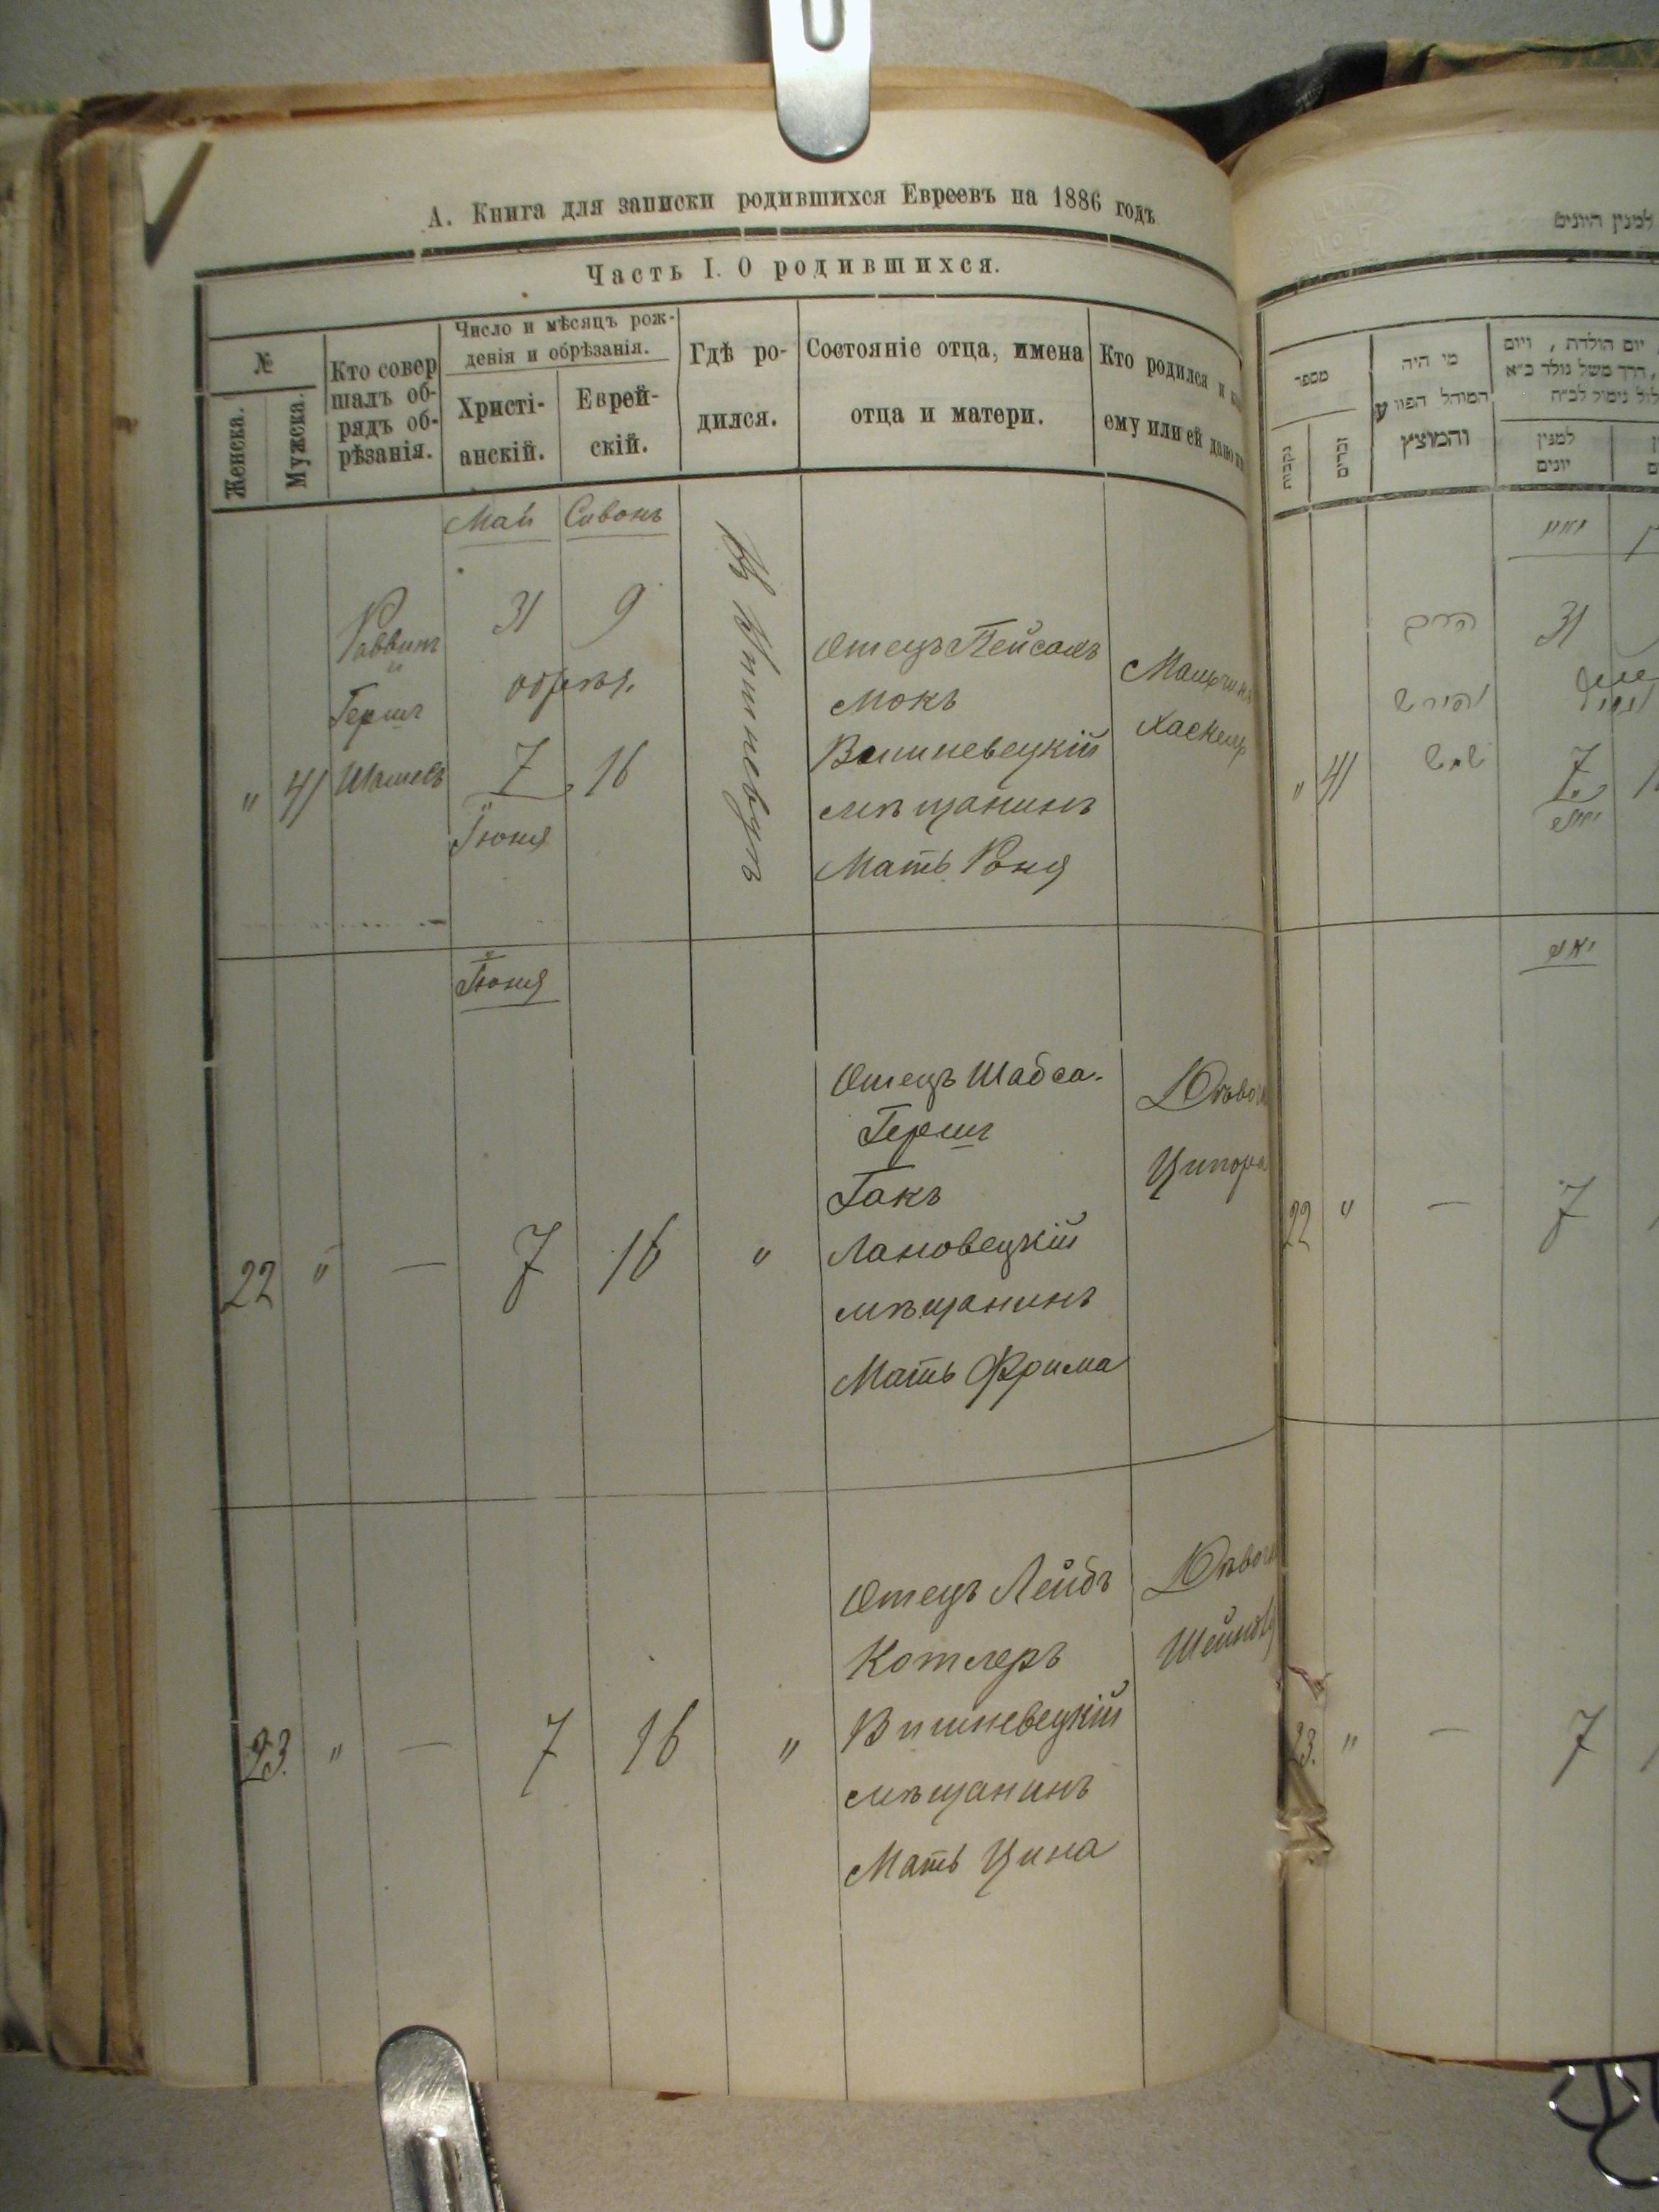 А. Книга для записки родившихся Евреевъ на 1886 годъ
Часть I. О родившихся.
№
Женска.
Мужска.
Кто совер
шалъ об-
рядъ об-
рѣзанія.
Число и мѣсяцъ рож-
денія и обрѣзанія.
Христі-
анскій.
Еврей-
скій.
Гдѣ ро-
дился.
Состояніе отца, имена
отца и матери.
Кто родился и
ему или ей дано
Май Сивонъ
" 41
Раввинъ
и
Гершъ
Шамесъ
31 9
обрѣзя.
7 16
Іюня
Въ Вишневцѣ
Отецъ Пейсахъ
Мокъ
Вишневецкій
мѣщанинъ
Мать Роня
Мальчикъ
Хаскель
Іюня
22 " — 7 16 "
Отецъ Шабса-
Гершъ
Гакъ
Лановецкій
мѣщанинъ
Мать Фрима
Дѣвоч
Ципора
23. " — 7 16 "
Отецъ Лейбъ
Котлеръ
Вишневецкій
мѣщанинъ
Мать Цина
Дѣвоч
למנין היונים
מספר
נקבות
זכרים
מי היה
המוהל הפורע
והמוצץ
יום הולדת , ויום
למנין
יונים
" 41
הרב
31
7
22 " — 7
23. " — 7